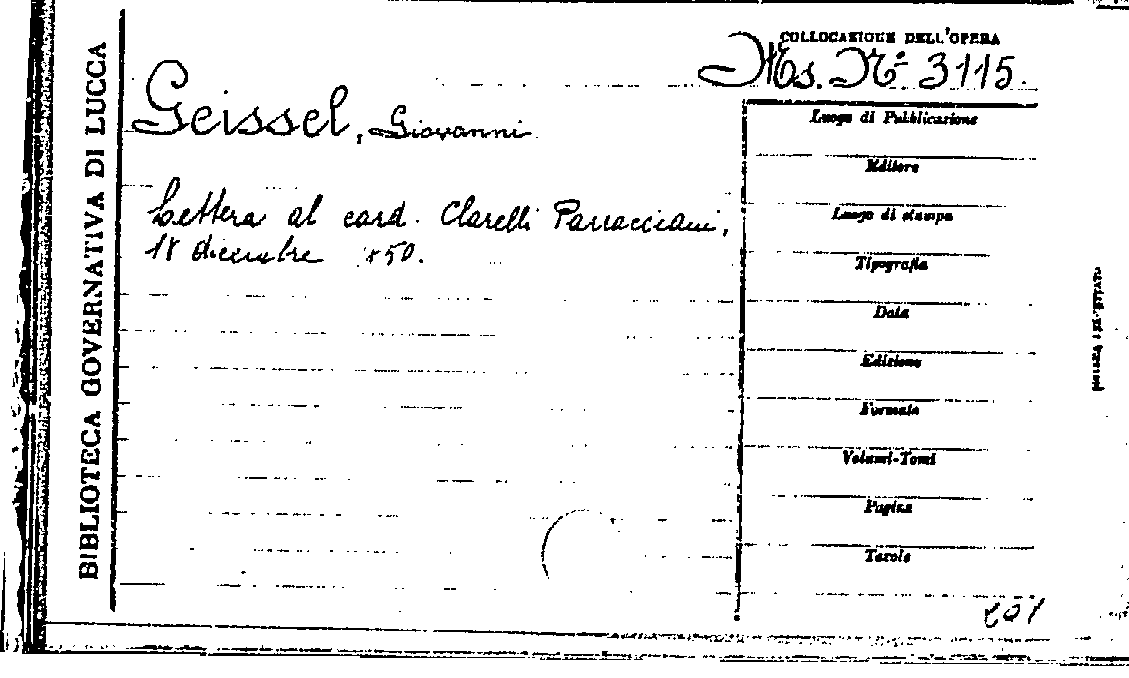 BIBLIOTECA GOVERNATIVA DI LUCCA
COLLOCAZIONE DELL'OPERA
Ms. Nº 3115.
Geissel, Giovanni
Lettera al card. Clarelli Parracciani,
18 dicembre 1850.
Luogo di Pubblicazione
Editore
Luogo di stampa
Tipografia
Data
Edizione
Formato
Volumi-Tomi
Pagine
Tavole